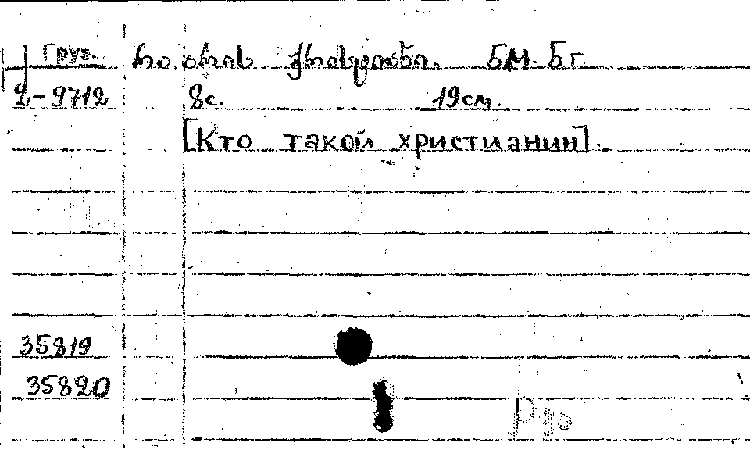 Груз. რა არის ქრისტიანი. БМ. БГ
2-9712 8с. 19см.
[Кто такой христианин].
35819
35820